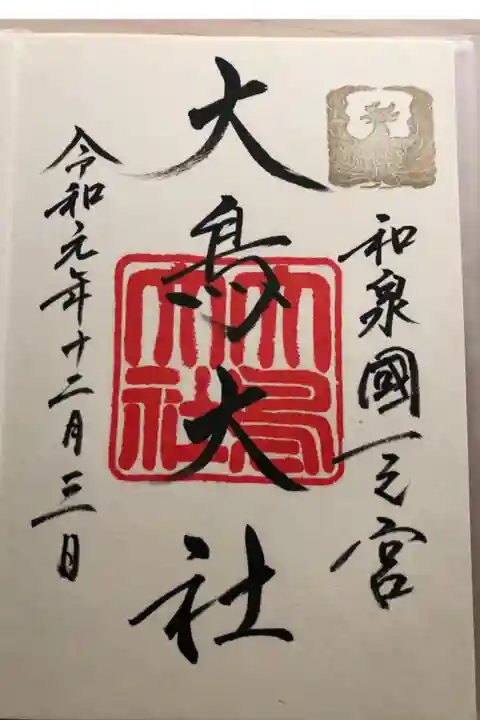 和泉國一之宮
大鳥大社
大鳥大社
令和元年十二月三日